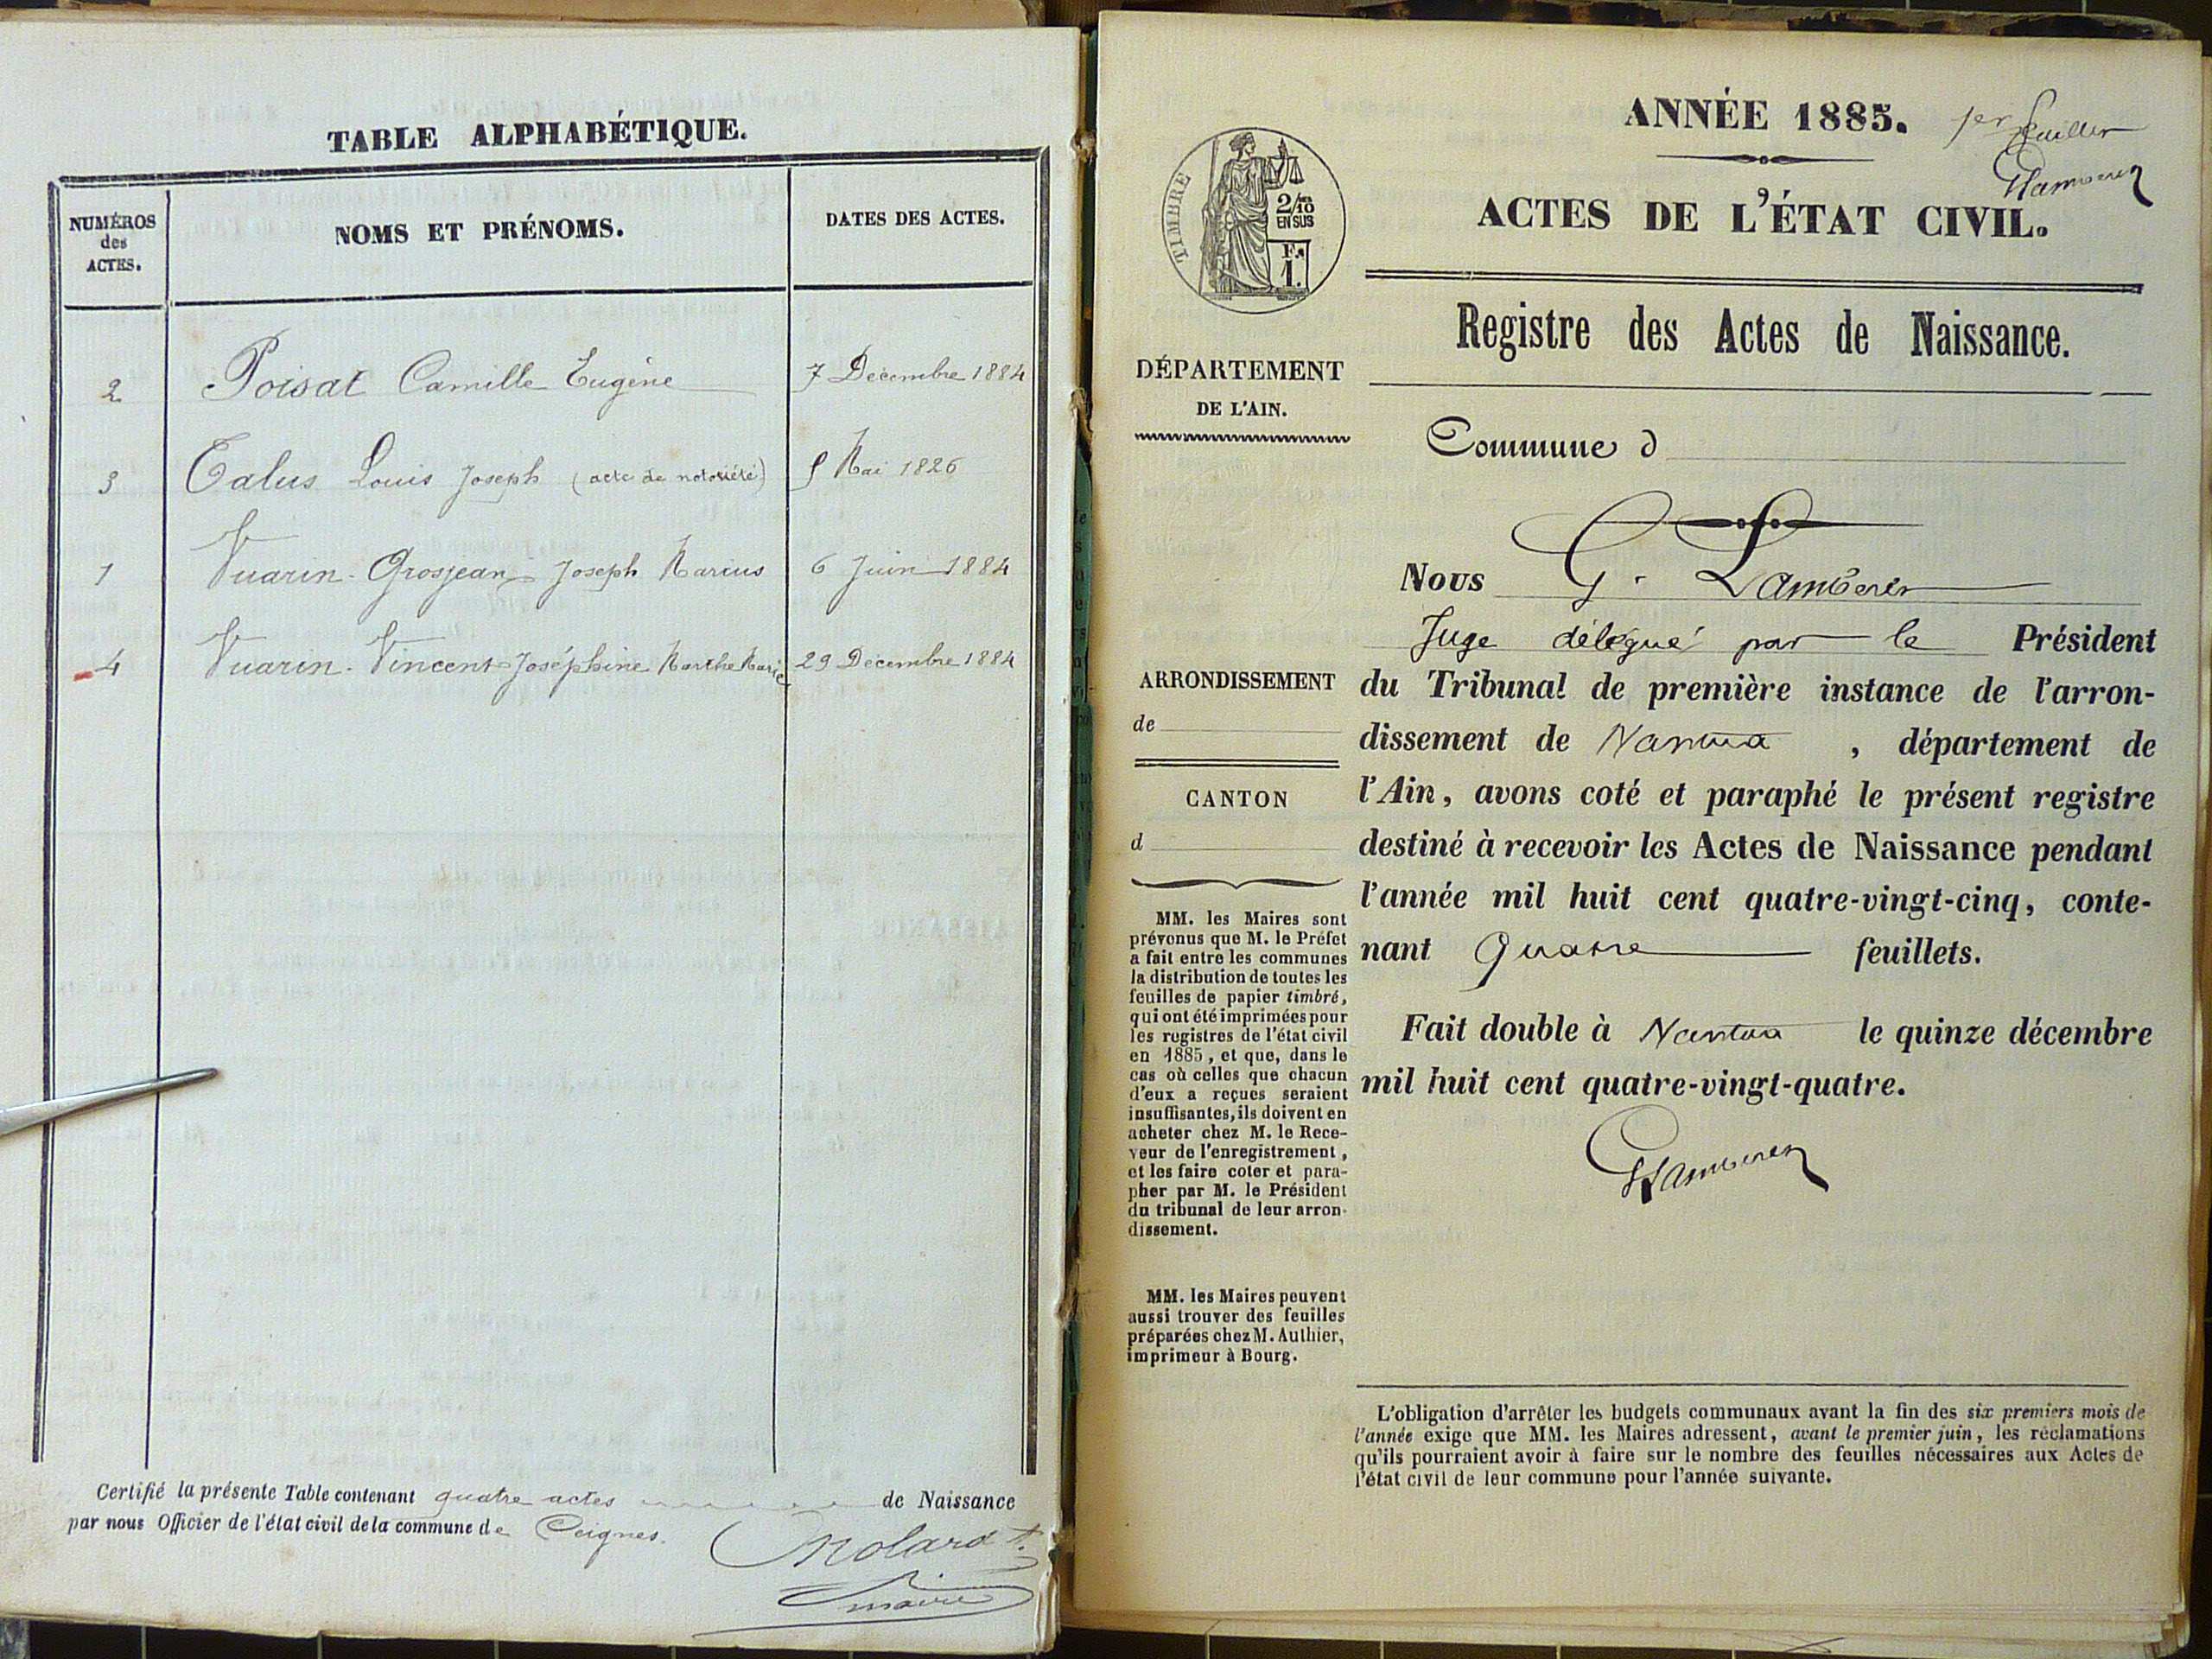 TABLE ALPHABÉTIQUE.
NUMÉROS
des
ACTES.
NOMS ET PRÉNOMS.
DATES DES ACTES.
2 Poisat Camille Eugène 7 Décembre 1884
3 Talus Louis Joseph (acte de notoriété) Mai 1826
1 Vuarin-Grosjean Joseph Marius 6 Juin 1884
4 Vuarin-Vincent Joséphine Marthe Marie 29 Décembre 1884
Certifié la présente Table contenant quatre actes de Naissance
par nous Officier de l'état civil de la commune de Ceignes.
Molard
maire
ANNÉE 1885.
1er feuillet
TIMBRE
2/10
EN SUS
F.
1.
ACTES DE L'ÉTAT CIVIL.
Registre des Actes de Naissance.
DÉPARTEMENT
DE L'AIN.
Commune d
ARRONDISSEMENT
de
CANTON
d
MM. les Maires sont
prévenus que M. le Préfet
a fait entre les communes
la distribution de toutes les
feuilles de papier timbré,
qui ont été imprimées pour
les registres de l'état civil
en 1885, et que, dans le
cas où celles que chacun
d'eux a reçues seraient
insuffisantes, ils doivent en
acheter chez M. le Rece-
veur de l'enregistrement,
et les faire coter et para-
pher par M. le Président
du tribunal de leur arron-
dissement.
MM. les Maires peuvent
aussi trouver des feuilles
préparées chez M. Authier,
imprimeur à Bourg.
Nous G.
Juge délégué par le Président
du Tribunal de première instance de l'arron-
dissement de Nantua, département de
l'Ain, avons coté et paraphé le présent registre
destiné à recevoir les Actes de Naissance pendant
l'année mil huit cent quatre-vingt-cinq, conte-
nant Quatre feuillets.
Fait double à Nantua le quinze décembre
mil huit cent quatre-vingt-quatre.
L'obligation d'arrêter les budgets communaux avant la fin des six premiers mois de
l'année exige que MM. les Maires adressent, avant le premier juin, les réclamations
qu'ils pourraient avoir à faire sur le nombre des feuilles nécessaires aux Actes de
l'état civil de leur commune pour l'année suivante.